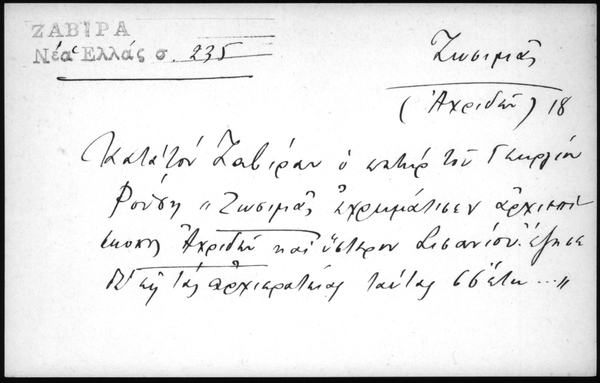 ΖΑΒΙΡΑ
Νέα Ἑλλάς σ. 235
Ζωσιμᾶς
(Ἀχριδῶν) 18
Κατά τόν Ζαβίραν ὁ πατήρ τοῦ Γεωργίου
Ῥούση "Ζωσιμᾶς ἐχρημάτισεν ἀρχιεπί
σκοπος Ἀχριδῶν καί ὕστερον Σισανίου. ἔζησε
δέ εἰς τάς ἀρχιερατείας ταύτας 55 ἔτη..."